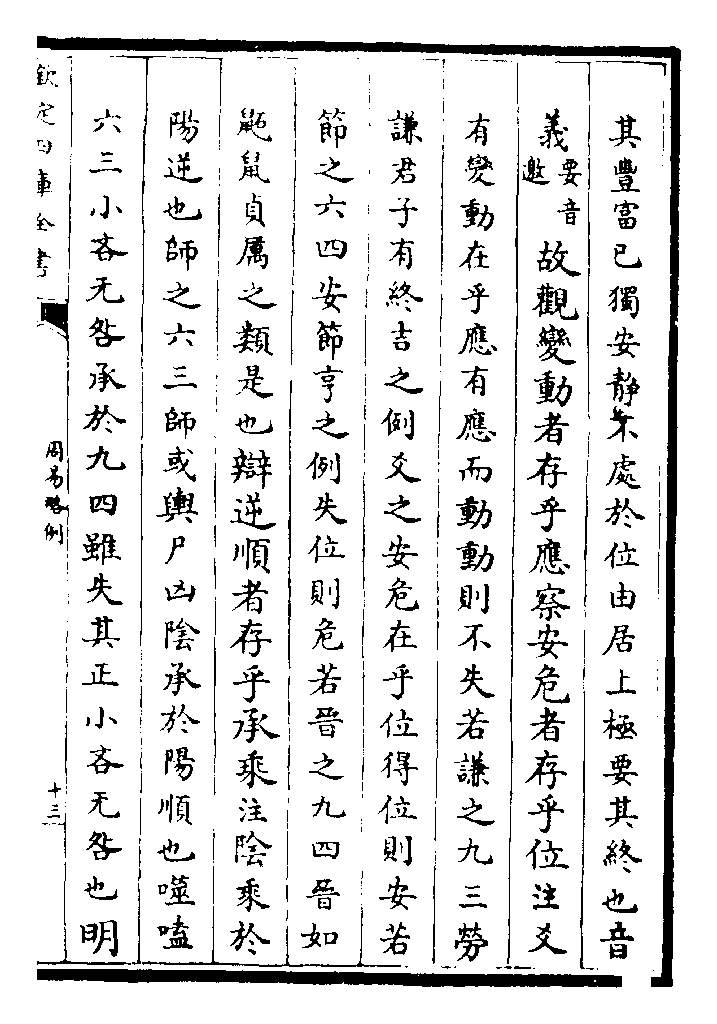 其豐富已獨安静不處於位由居上極要其終也音
義要音邀故觀變動者存乎應察安危者存乎位注爻
有變動在乎應有應而動動則不失若謙之九三勞
謙君子有終吉之例爻之安危在乎位得位則安若
節之六四安節亨之例失位則危若晉之九四晉如
鼫鼠貞厲之類是也辯逆順者存乎承乘注陰乘於
陽逆也師之六三師或輿尸凶陰承於陽順也噬嗑
六三小吝无咎承於九四雖失其正小吝无咎也明
欽定四庫全書
周易略例
十三